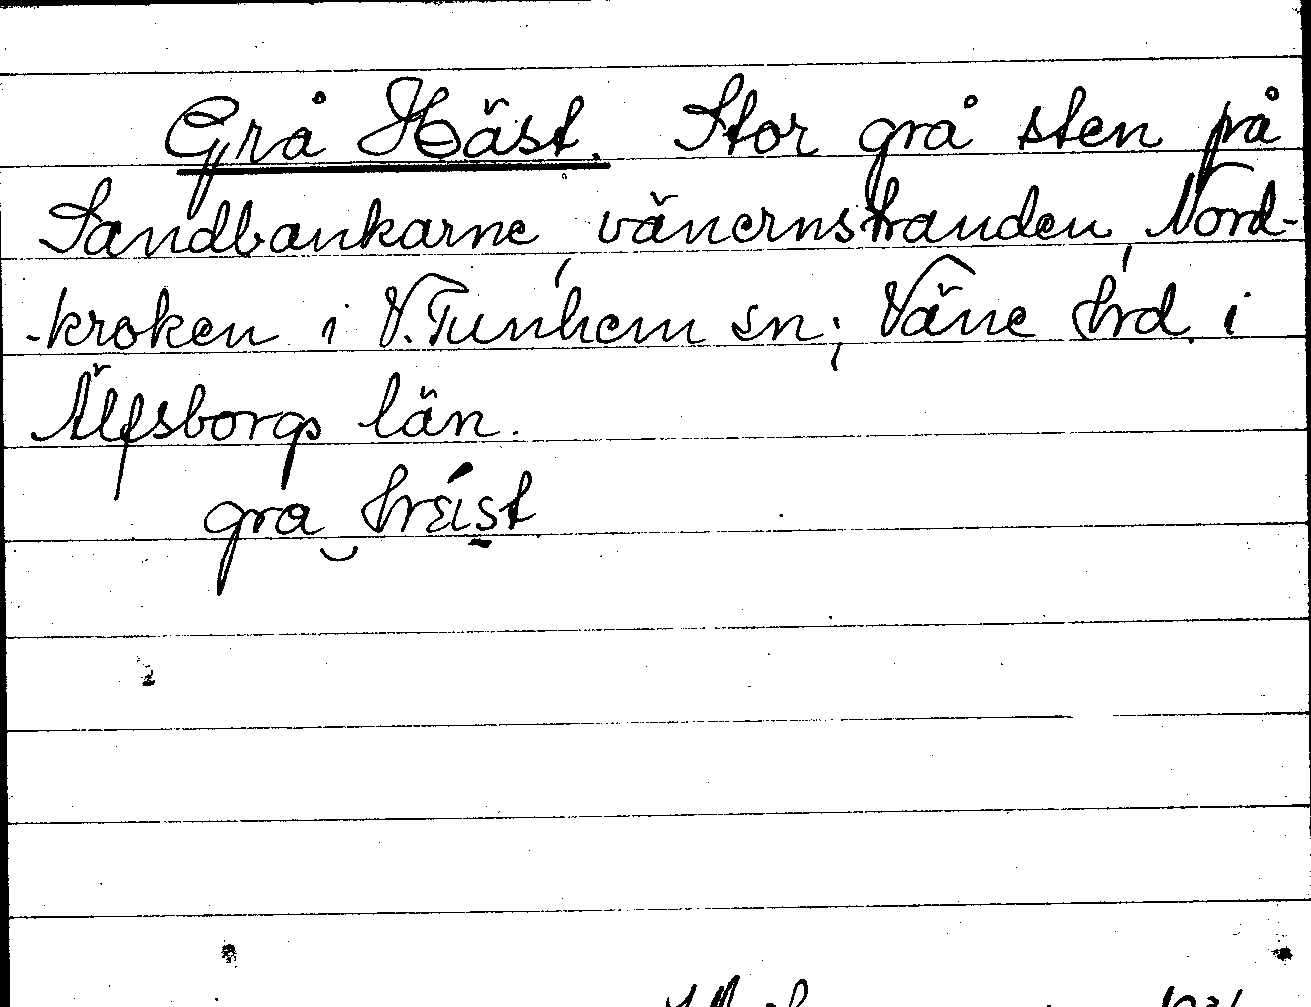 Grå Häst. Stor grå sten på
Sandbankarne, vänernstranden, Nord-
-kroken i V. Tunhem sn; Väne hrd. i
Älfsborgs län.
gra